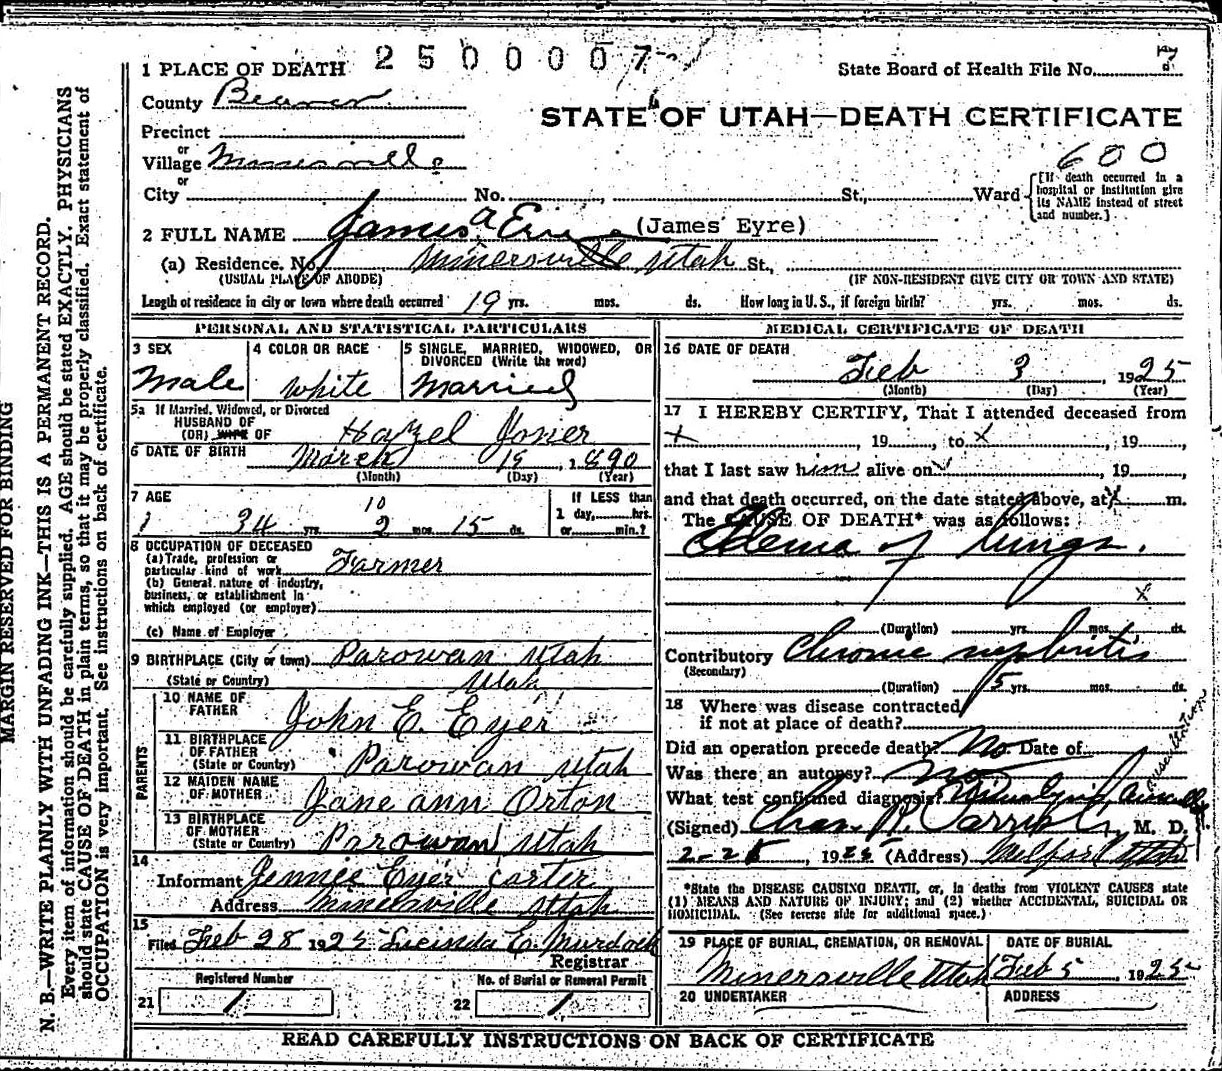 2500007
1 PLACE OF DEATH
State Board of Health File No. 7
County Beaver
STATE OF UTAH—DEATH CERTIFICATE
Precinct
or
Village Minersville
600
or
City No. St., Ward
[If death occurred in a hospital or institution give its NAME instead of street and number.]
2 FULL NAME James A (James Eyre)
(a) Residence. No. Minersville Utah St.,
(USUAL PLACE OF ABODE) (IF NON-RESIDENT GIVE CITY OR TOWN AND STATE)
Length of residence in city or town where death occurred 19 yrs. mos. ds. How long in U. S., if foreign birth? yrs. mos. ds.
PERSONAL AND STATISTICAL PARTICULARS
3 SEX 4 COLOR OR RACE 5 SINGLE, MARRIED, WIDOWED, OR DIVORCED (Write the word)
Male White Married
5a If Married, Widowed, or Divorced
HUSBAND OF
(OR) WIFE OF Hazel
6 DATE OF BIRTH March 19, 1890
(Month) (Day) (Year)
7 AGE 10 If LESS than
1 day, hrs.
34 yrs. 2 mos. 15 ds. or min.?
8 OCCUPATION OF DECEASED
(a) Trade, profession or
particular kind of work Farmer
(b) General nature of industry,
business, or establishment in
which employed (or employer)
(c) Name of Employer
9 BIRTHPLACE (City or town) Parowan Utah
(State or Country) Utah
PARENTS
10 NAME OF FATHER John E. Eyer
11 BIRTHPLACE OF FATHER
(State or Country) Parowan Utah
12 MAIDEN NAME OF MOTHER Jane Ann Orton
13 BIRTHPLACE OF MOTHER
(State or Country) Parowan Utah
14
Informant Jennie Eyer Carter
Address Minersville Utah
15
Filed Feb 28 1925 Lucinda E. Murdock
Registrar
Registered Number No. of Burial or Removal Permit
21 1 22 1
MEDICAL CERTIFICATE OF DEATH
16 DATE OF DEATH
Feb 3, 1925
(Month) (Day) (Year)
17 I HEREBY CERTIFY, That I attended deceased from
x, 19, to x, 19
that I last saw him alive on, 19
and that death occurred, on the date stated above, at x m.
The CAUSE OF DEATH* was as follows:
Edema of lungs.
x
(Duration) yrs. mos. ds.
Contributory Chronic nephritis
(Secondary)
(Duration) 5 yrs. mos. ds.
18 Where was disease contracted
if not at place of death?
Did an operation precede death? No Date of
Was there an autopsy? No
What test confirmed diagnosis?
(Signed) Chas. R. M. D.
1925 (Address) Milford Utah
*State the DISEASE CAUSING DEATH, or, in deaths from VIOLENT CAUSES state
(1) MEANS AND NATURE OF INJURY; and (2) whether ACCIDENTAL, SUICIDAL OR
HOMICIDAL. (See reverse side for additional space.)
19 PLACE OF BURIAL, CREMATION, OR REMOVAL DATE OF BURIAL
Minersville Utah Feb 5 1925
20 UNDERTAKER ADDRESS
READ CAREFULLY INSTRUCTIONS ON BACK OF CERTIFICATE
MARGIN RESERVED FOR BINDING
N. B.—WRITE PLAINLY WITH UNFADING INK—THIS IS A PERMANENT RECORD.
Every item of information should be carefully supplied. AGE should be stated EXACTLY. PHYSICIANS
should state CAUSE OF DEATH in plain terms, so that it may be properly classified. Exact statement of
OCCUPATION is very important. See instructions on back of certificate.